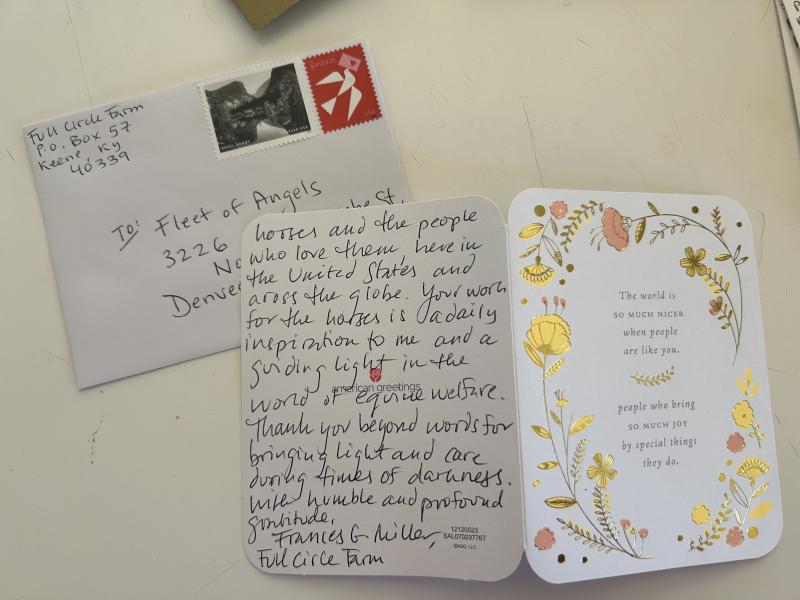 Full Circle Farm
P.O. Box 57
Keene, Ky
40339
Forever USA
USA
To: Fleet of Angels
3226
St.
No
Denver
horses and the people
who love them, here in
the United States and
across the globe. Your work
for the horses is a daily
inspiration to me and a
guiding light in the
american greetings
world of equine welfare.
Thank you beyond words for
bringing light and care
during times of darkness.
With humble and profound
gratitude,
Frances G Miller,
Full Circle Farm
12120523
SAL07023776T
©AGC, LLC
The world is
SO MUCH NICER
when people
are like you,
people who bring
SO MUCH JOY
by special things
they do.